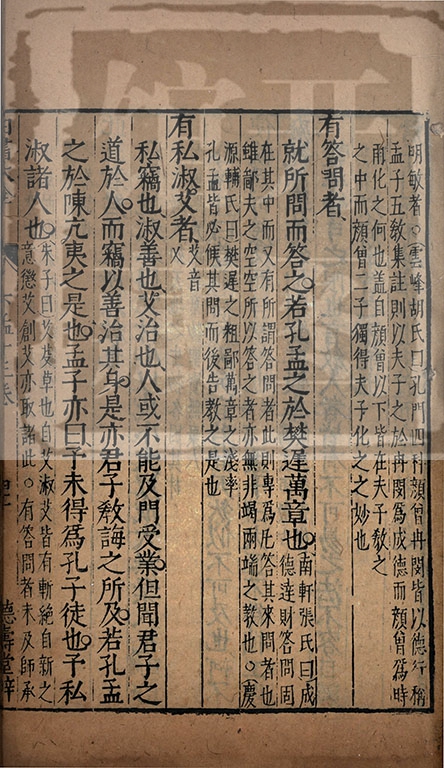 明敏者○雲峰胡氏曰孔門四科顏冉閔皆以德行稱
孟子五敎集註則以夫子之於冉閔為成德而顏曾為時
雨化之何也蓋自顏曾以下皆在夫子敎之
之中而顏曾二子獨得夫子化之之妙也
有答問者
就所問而答之若孔孟之於樊遲萬章也
南軒張氏曰成
德達財答問固
在其中而又有所謂答問者此則專為凡答其來問者也
雖鄙夫之空空所以答之者亦無非竭兩端之敎也○慶
源輔氏曰樊遲之粗鄙萬章之淺率
孔孟皆必俟其問而後告敎之是也
有私淑艾者
艾音
乂
私竊也淑善也艾治也人或不能及門受業但聞君子之
道於人而竊以善治其身是亦君子敎誨之所及若孔孟
之於陳亢夷之是也孟子亦曰予未得為孔子徒也予私
淑諸人也
朱子曰艾芟草也自艾淑艾皆有斬絕自新之
意懲艾創艾亦取諸此○有答問者未及師承
德壽堂梓